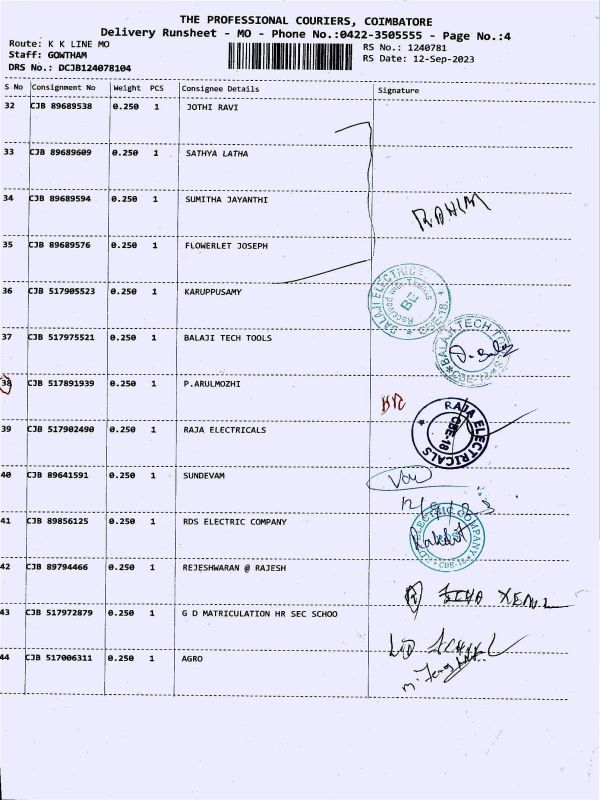 THE PROFESSIONAL COURIERS, COIMBATORE
Delivery Runsheet - MO - Phone No.:0422-3505555 - Page No.:4
Route: K K LINE MO
Staff: GOWTHAM
DRS No.: DCJB124078104
RS No.: 1240781
RS Date: 12-Sep-2023
S No Consignment No Weight PCS Consignee Details Signature
32 CJB 89689538 0.250 1 JOTHI RAVI
33 CJB 89689609 0.250 1 SATHYA LATHA
34 CJB 89689594 0.250 1 SUMITHA JAYANTHI
RAHIM
35 CJB 89689576 0.250 1 FLOWERLET JOSEPH
36 CJB 517905523 0.250 1 KARUPPUSAMY
BALAJI ELECTRICALS
BE
CBE-18
37 CJB 517975521 0.250 1 BALAJI TECH TOOLS
BALAJI TECH TOOLS
CBE-18
38 CJB 517891939 0.250 1 P.ARULMOZHI
39 CJB 517902490 0.250 1 RAJA ELECTRICALS
RAJA ELECTRICALS
CBE-18
40 CJB 89641591 0.250 1 SUNDEVAM
41 CJB 89856125 0.250 1 RDS ELECTRIC COMPANY
ELECTRIC COMPANY
CBE-18
42 CJB 89794466 0.250 1 REJESHWARAN @ RAJESH
43 CJB 517972879 0.250 1 G D MATRICULATION HR SEC SCHOO
44 CJB 517006311 0.250 1 AGRO